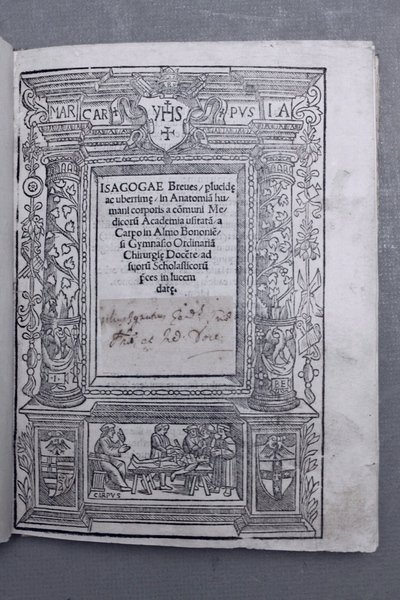 MAR CAR YHS PVS IA
ISAGOGAE Breues / plucidę
ac uberrimę / in Anatomiā hu
mani corporis a cōmuni Me-
dicorū Academia usitatā / a
Carpo in Almo Bononiē/
si Gymnasio Ordinariā
Chirurgię Docēte / ad
suorū Scholasticorū
pces in lucem
datę.
CARPVS